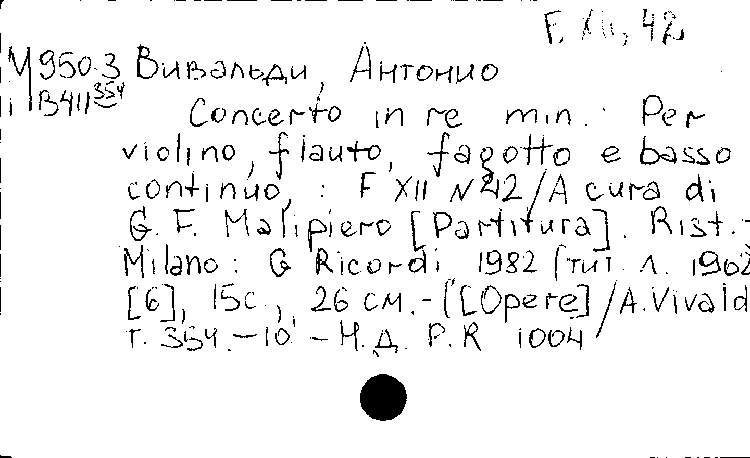 F. XII, 42
М950.3 Вивальди, Антонио
i В411 354
Concerto in re min. : Per
violino, flauto, fagotto e basso
continuo, : F XII N 42 / A cura di
G. F. Malipiero [Partitura]. Rist.-
Milano : G Ricordi, 1982 (тит. л. 1962
[6], 15 с., 26 см. - ([Opere] / A. Vivald
т. 354. - 10 - Н. Д. P. R 1004